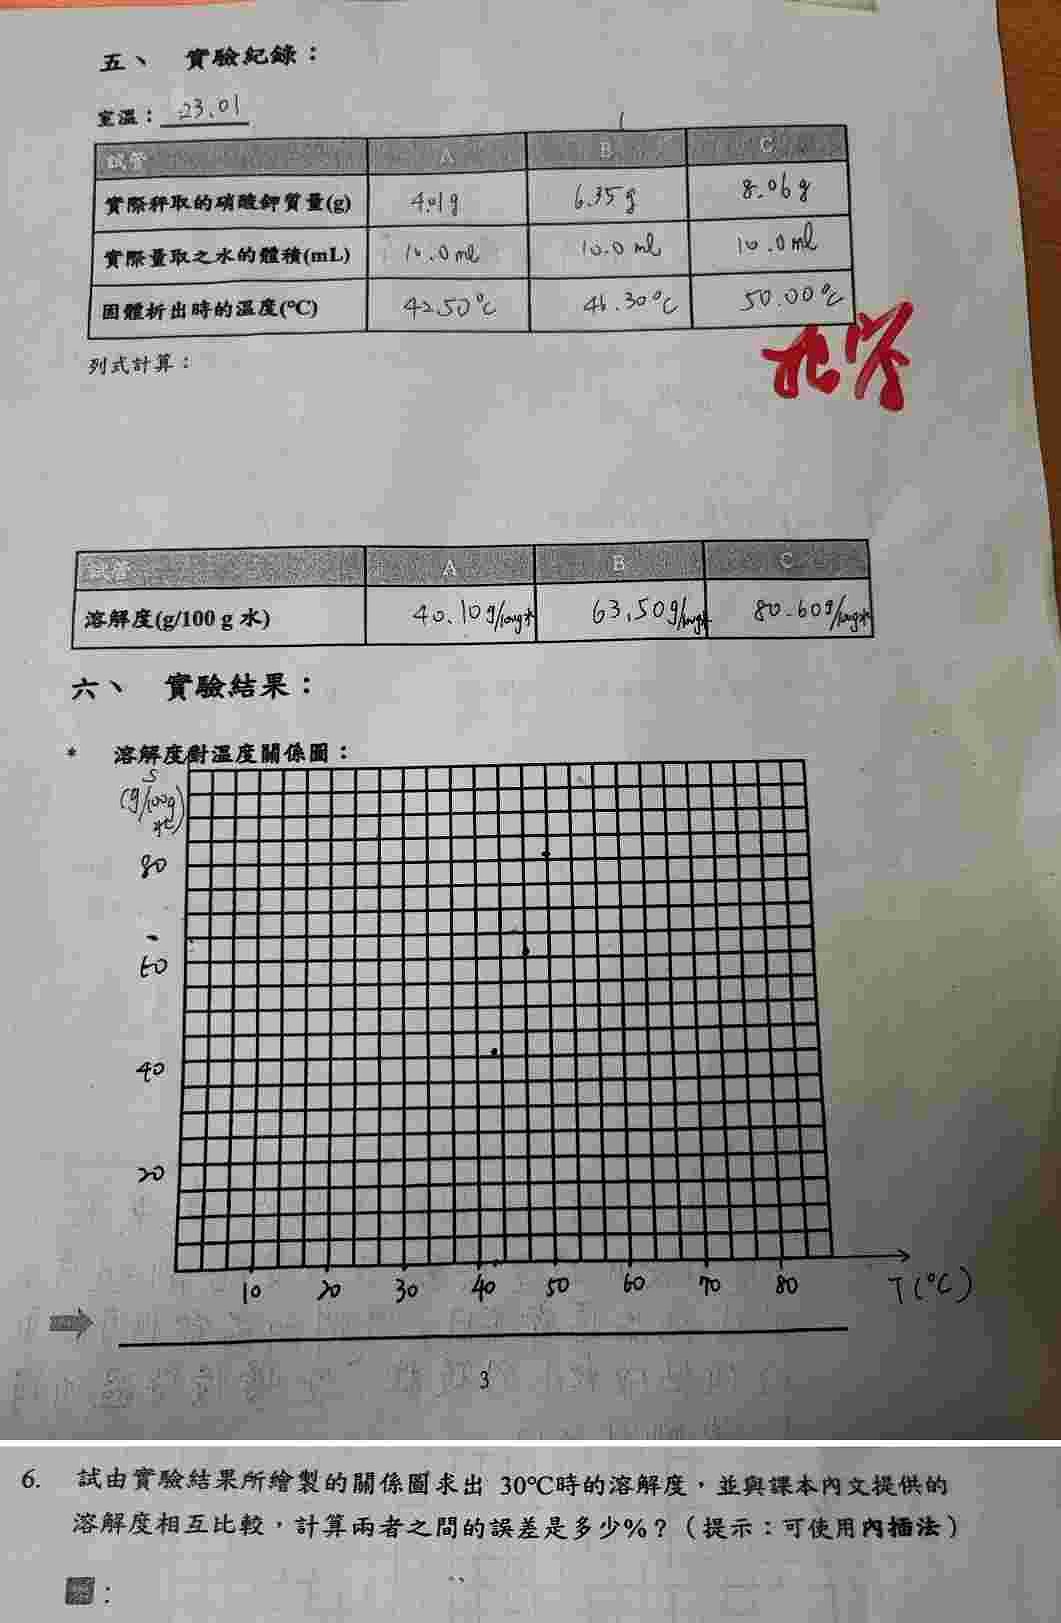 五、 實驗紀錄：
室溫： 23.01
試管 A B C
實際秤取的硝酸鉀質量(g) 4.01g 6.35g 8.06g
實際量取之水的體積(mL) 10.0ml 10.0ml 10.0ml
固體析出時的溫度(°C) 42.50°C 46.30°C 50.00°C
列式計算：
試管 A B C
溶解度(g/100 g 水) 40.10g/100g水 63.50g/100g水 80.60g/100g水
六、 實驗結果：
* 溶解度對溫度關係圖：
S
(g/100g
水)
80
60
40
20
10 20 30 40 50 60 70 80 T(°C)
3
6. 試由實驗結果所繪製的關係圖求出 30°C時的溶解度，並與課本內文提供的
溶解度相互比較，計算兩者之間的誤差是多少%？（提示：可使用內插法）